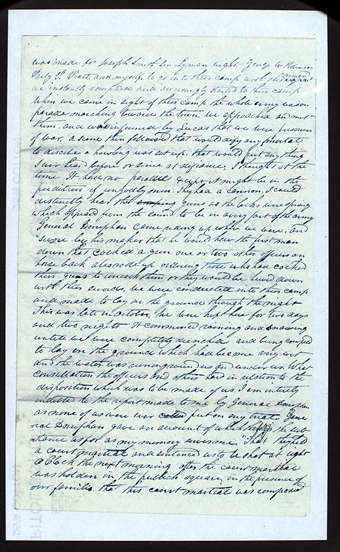 was made for Joseph Smith Sen Lyman night George W Robinson
Parly P. Prat, and my self, to go into their camp with this
we instantly complied and accordingly started to their camp
when we came in sight of their camp the whole army was on
parade marching towards the town, we approached an met
them, and was informed by Lucas that we were prisoners
of war, a scene then followed that would defy any mortal
to describe a howling was set up, that would put any thing
I ever heard before or since at defiance, I thought at the
time it had no parallel except it might be in the
perdition of ungodly men they had a cannon, I could
distinctly hear the guns as the locks were sprung
which appeared from the sound to be in every part of the army
General Doniphan came riding up where we were, and
swore by his maker that he would hew the first man
down that cocked a gun one or two other officers on
horse back also rode up ordering those who had cocked
their guns to uncock them or they would be hewed down
with their swords, we were conducted into their camp
and made to lay on the ground through the night
This was late in October, we were kept here for two days
and two nights It commenced raining and snowing
until we were completely drenched and being compelled
to lay on the ground which had become very wet
and the water was running round us and under us What
consultation the officers and others had in relation to the
disposition which was to be made of us, I am entirely
indebted to the report made to me by General Doniphan
as none of us were put on any trial. Gene
ral Doniphan gave an account of which the sub
stance as far as my memory serves me That they had
a court martial and sentenced us to be shot at eight
o Clock the next morning after the court martial
was holden in the publick square, in the presence of
our families that this court martial was composed